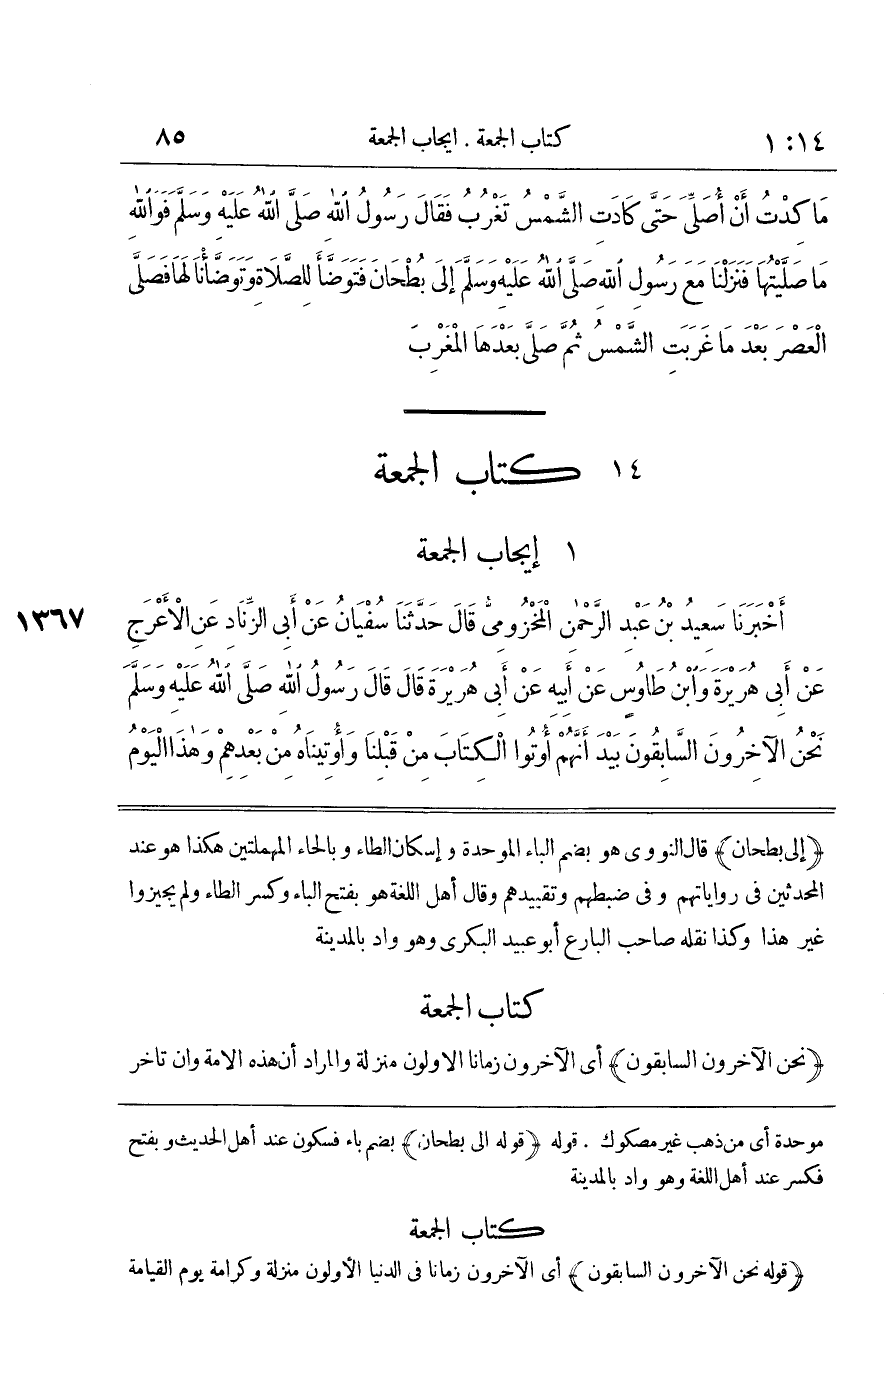 ١:١٤ كتاب الجمعة . ايجاب الجمعة ٨٥
مَا كِدْتُ أَنْ أُصَلِّيَ حَتَّى كَادَتِ الشَّمْسُ تَغْرُبُ فَقَالَ رَسُولُ اللهِ صَلَّى اللهُ عَلَيْهِ وَسَلَّمَ فَوَاللهِ
مَا صَلَّيْتُهَا فَنَزَلْنَا مَعَ رَسُولِ اللهِ صَلَّى اللهُ عَلَيْهِ وَسَلَّمَ إِلَى بُطْحَانَ فَتَوَضَّأَ لِلصَّلَاةِ وَتَوَضَّأْنَا لَهَا فَصَلَّى
الْعَصْرَ بَعْدَ مَا غَرَبَتِ الشَّمْسُ ثُمَّ صَلَّى بَعْدَهَا الْمَغْرِبَ
١٤ كتاب الجمعة
١ إيجاب الجمعة
١٣٦٧ أَخْبَرَنَا سَعِيدُ بْنُ عَبْدِ الرَّحْمٰنِ الْمَخْزُومِىُّ قَالَ حَدَّثَنَا سُفْيَانُ عَنْ أَبِى الزِّنَادِ عَنِ الْأَعْرَجِ
عَنْ أَبِى هُرَيْرَةَ وَابْنُ طَاوُسٍ عَنْ أَبِيهِ عَنْ أَبِى هُرَيْرَةَ قَالَ قَالَ رَسُولُ اللهِ صَلَّى اللهُ عَلَيْهِ وَسَلَّمَ
نَحْنُ الْآخِرُونَ السَّابِقُونَ بَيْدَ أَنَّهُمْ أُوتُوا الْكِتَابَ مِنْ قَبْلِنَا وَأُوتِينَاهُ مِنْ بَعْدِهِمْ وَهٰذَا الْيَوْمُ
﴿إلى بطحان﴾ قال النووى هو بضم الباء الموحدة وإسكان الطاء وبالحاء المهملتين هكذا هو عند
المحدثين فى رواياتهم وفى ضبطهم وتقييدهم وقال أهل اللغة هو بفتح الباء وكسر الطاء ولم يجيزوا
غير هذا وكذا نقله صاحب البارع أبو عبيد البكرى وهو واد بالمدينة
كتاب الجمعة
﴿نحن الآخرون السابقون﴾ أى الآخرون زمانا الاولون منزلة والمراد أن هذه الامة وان تاخر
موحدة أى من ذهب غير مصكوك . قوله ﴿قوله الى بطحان﴾ بضم باء فسكون عند أهل الحديث وبفتح
فكسر عند أهل اللغة وهو واد بالمدينة
كتاب الجمعة
﴿قوله نحن الآخرون السابقون﴾ أى الآخرون زمانا فى الدنيا الأولون منزلة وكرامة يوم القيامة